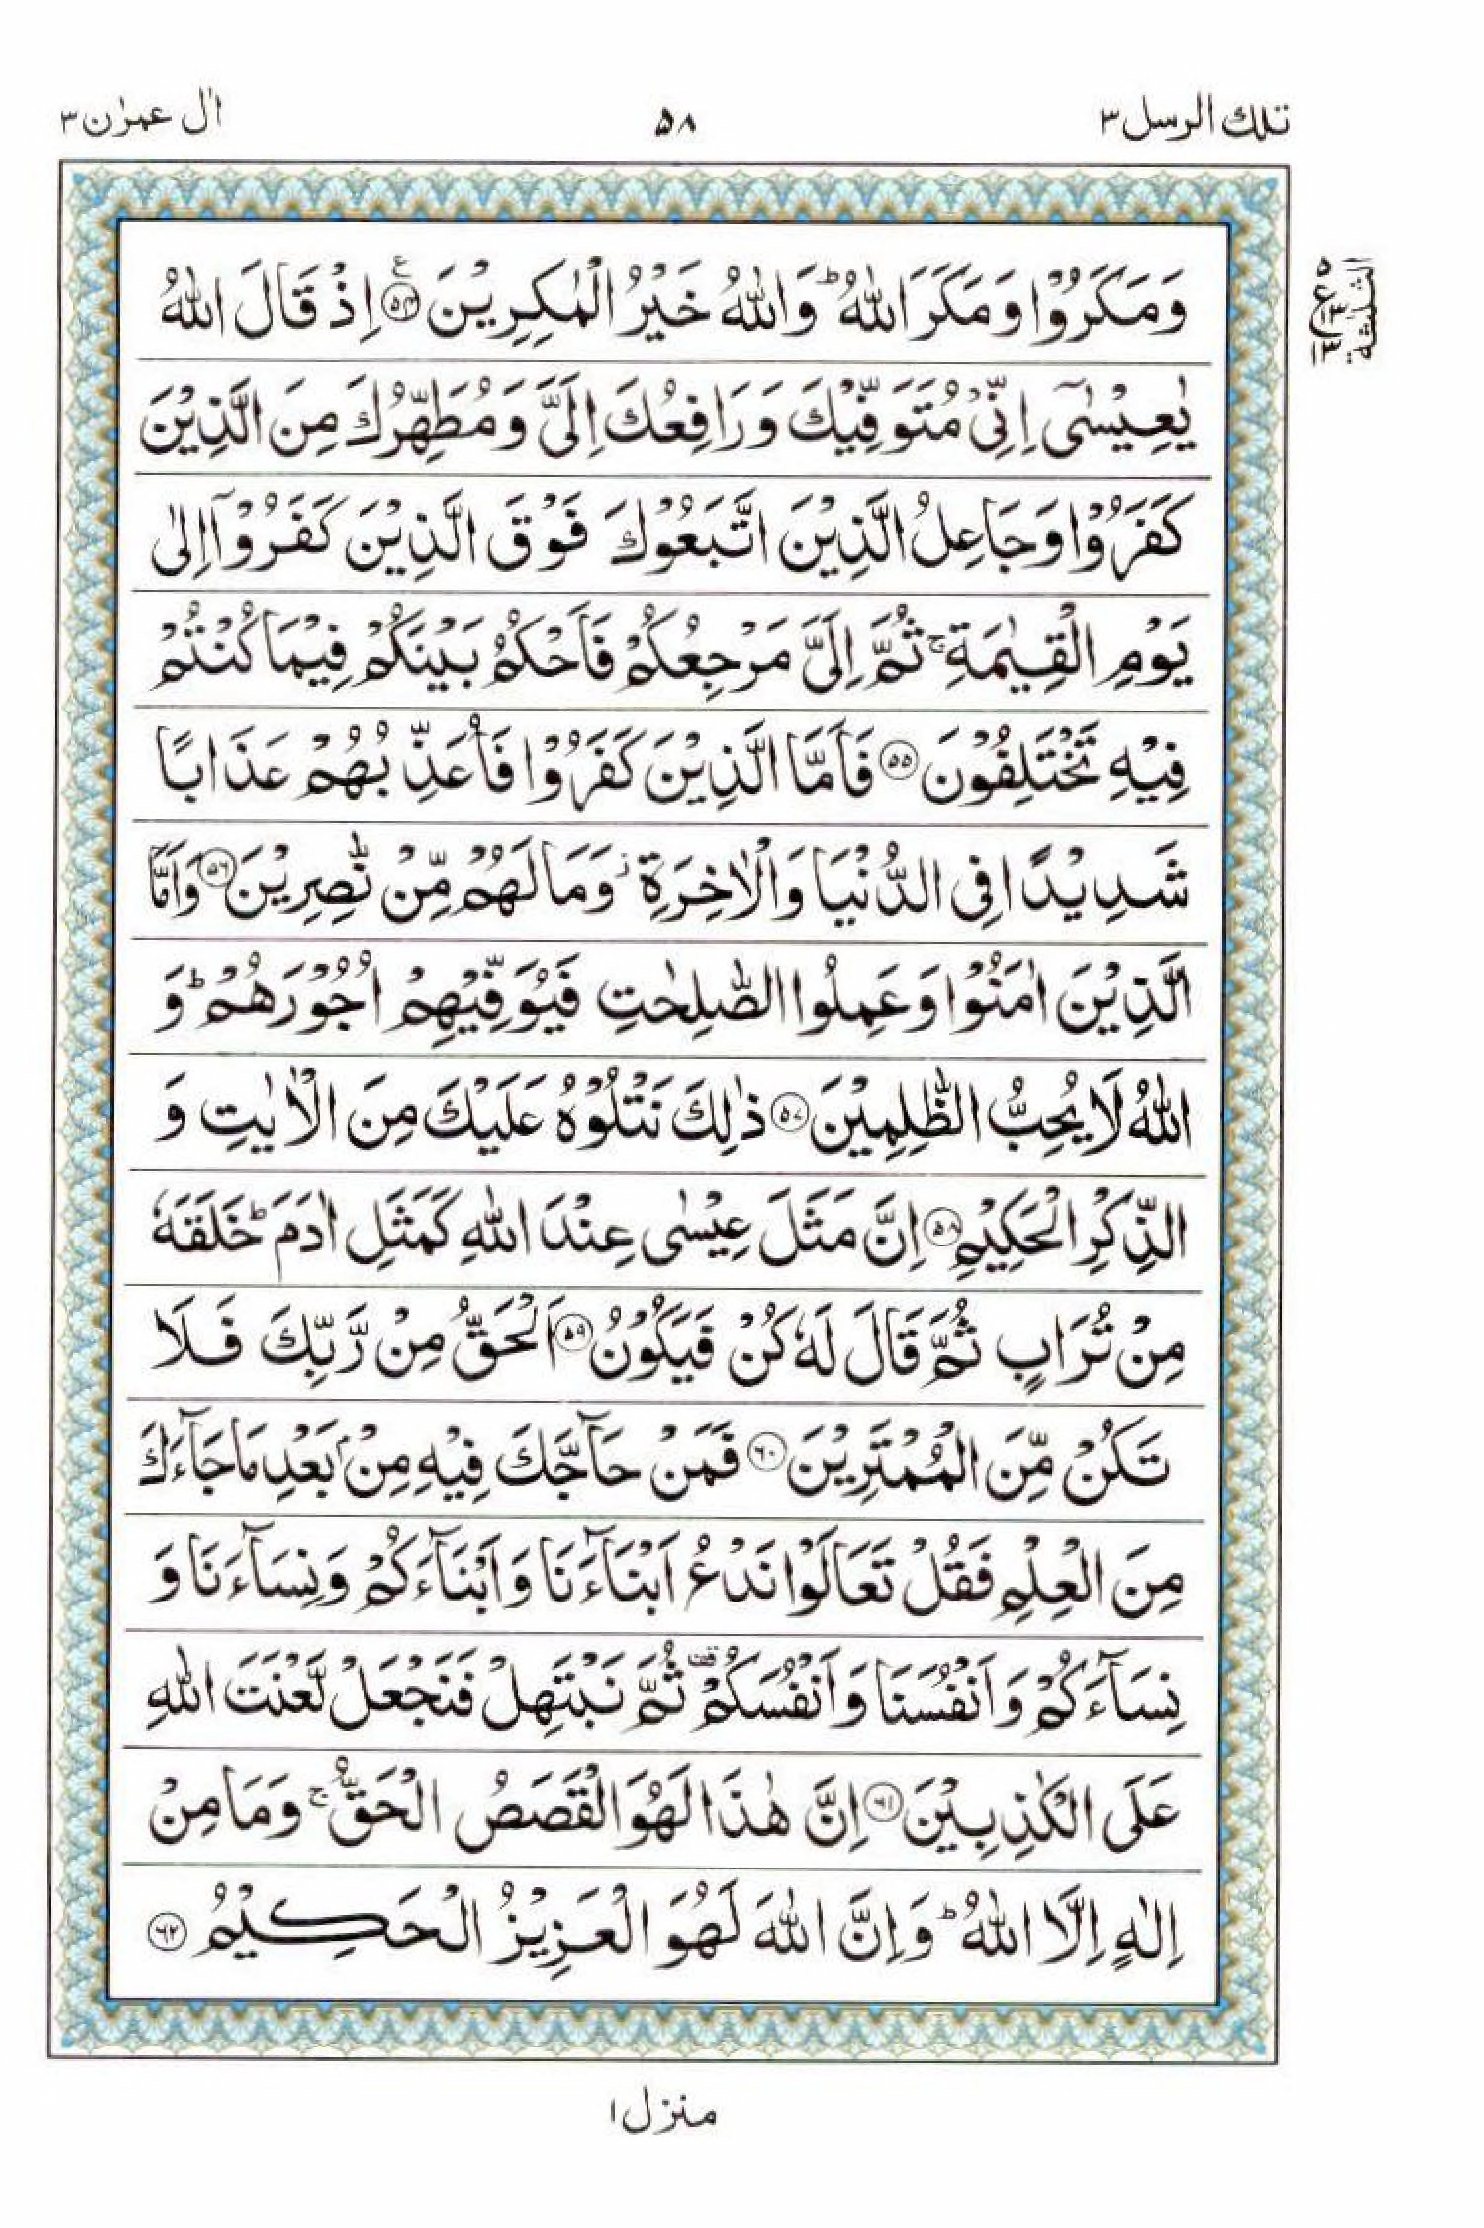 تلك الرسل ٣
٥٨
اٰل عمرٰن ٣
وَمَكَرُوْا وَمَكَرَ اللّٰهُ ؕ وَاللّٰهُ خَيْرُ الْمٰكِرِيْنَ ﴿۵۴﴾ اِذْ قَالَ اللّٰهُ
يٰعِيْسٰۤى اِنِّىْ مُتَوَفِّيْكَ وَرَافِعُكَ اِلَىَّ وَمُطَهِّرُكَ مِنَ الَّذِيْنَ
كَفَرُوْا وَجَاعِلُ الَّذِيْنَ اتَّبَعُوْكَ فَوْقَ الَّذِيْنَ كَفَرُوْۤا اِلٰى
يَوْمِ الْقِيٰمَةِ ۚ ثُمَّ اِلَىَّ مَرْجِعُكُمْ فَاَحْكُمُ بَيْنَكُمْ فِيْمَا كُنْتُمْ
فِيْهِ تَخْتَلِفُوْنَ ﴿۵۵﴾ فَاَمَّا الَّذِيْنَ كَفَرُوْا فَاُعَذِّبُهُمْ عَذَابًا
شَدِيْدًا فِى الدُّنْيَا وَالْاٰخِرَةِ ؗ وَمَا لَهُمْ مِّنْ نّٰصِرِيْنَ ﴿۵۶﴾ وَاَمَّا
الَّذِيْنَ اٰمَنُوْا وَعَمِلُوا الصّٰلِحٰتِ فَيُوَفِّيْهِمْ اُجُوْرَهُمْ ؕ وَ
اللّٰهُ لَا يُحِبُّ الظّٰلِمِيْنَ ﴿۵۷﴾ ذٰلِكَ نَتْلُوْهُ عَلَيْكَ مِنَ الْاٰيٰتِ وَ
الذِّكْرِ الْحَكِيْمِ ﴿۵۸﴾ اِنَّ مَثَلَ عِيْسٰى عِنْدَ اللّٰهِ كَمَثَلِ اٰدَمَ ؕ خَلَقَهٗ
مِنْ تُرَابٍ ثُمَّ قَالَ لَهٗ كُنْ فَيَكُوْنُ ﴿۵۹﴾ اَلْحَقُّ مِنْ رَّبِّكَ فَلَا
تَكُنْ مِّنَ الْمُمْتَرِيْنَ ﴿۶۰﴾ فَمَنْ حَآجَّكَ فِيْهِ مِنْۢ بَعْدِ مَا جَآءَكَ
مِنَ الْعِلْمِ فَقُلْ تَعَالَوْا نَدْعُ اَبْنَآءَنَا وَاَبْنَآءَكُمْ وَنِسَآءَنَا وَ
نِسَآءَكُمْ وَاَنْفُسَنَا وَاَنْفُسَكُمْ ۫ ثُمَّ نَبْتَهِلْ فَنَجْعَلْ لَّعْنَتَ اللّٰهِ
عَلَى الْكٰذِبِيْنَ ﴿۶۱﴾ اِنَّ هٰذَا لَهُوَ الْقَصَصُ الْحَقُّ ۚ وَمَا مِنْ
اِلٰهٍ اِلَّا اللّٰهُ ؕ وَاِنَّ اللّٰهَ لَهُوَ الْعَزِيْزُ الْحَكِيْمُ ﴿۶۲﴾
الثلثة
٥
ع
١٣
١٣
منزل ١